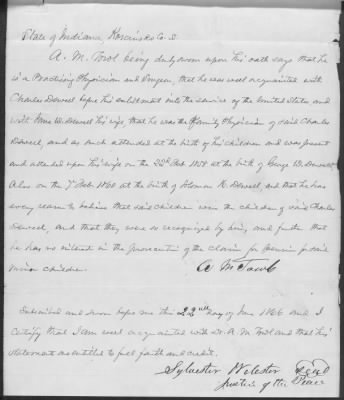 State of Indiana, Kosciusko Co. S
A. M. Towl being duly sworn upon his oath says that he
is a Practising Physician and Surgeon, that he was well acquainted with
Charles Dowell before his enlistment into the service of the United States and
with Anne W. Dowell his wife, that he was the family Physician of said Charles
Dowell, and as such attended at the birth of his children and was present
and attended upon his wife on the 22nd Feb. 1858 at the birth of George W. Dowell,
Also on the 7 Feb. 1860 at the birth of Solomon R. Dowell, and that he has
every reason to believe that said children were the children of said Charles
Dowell, and that they were so recognized by being and further that
he has no interest in the prosecution of the claim for pension for said
minor children.
A M Towl
Subscribed and sworn before me this 22nd day of June 1866 and I
certify that I am well acquainted with Dr. A. M. Towl and that his
statements are entitled to full faith and credit.
Sylvester Webster Seal
Justice of the Peace